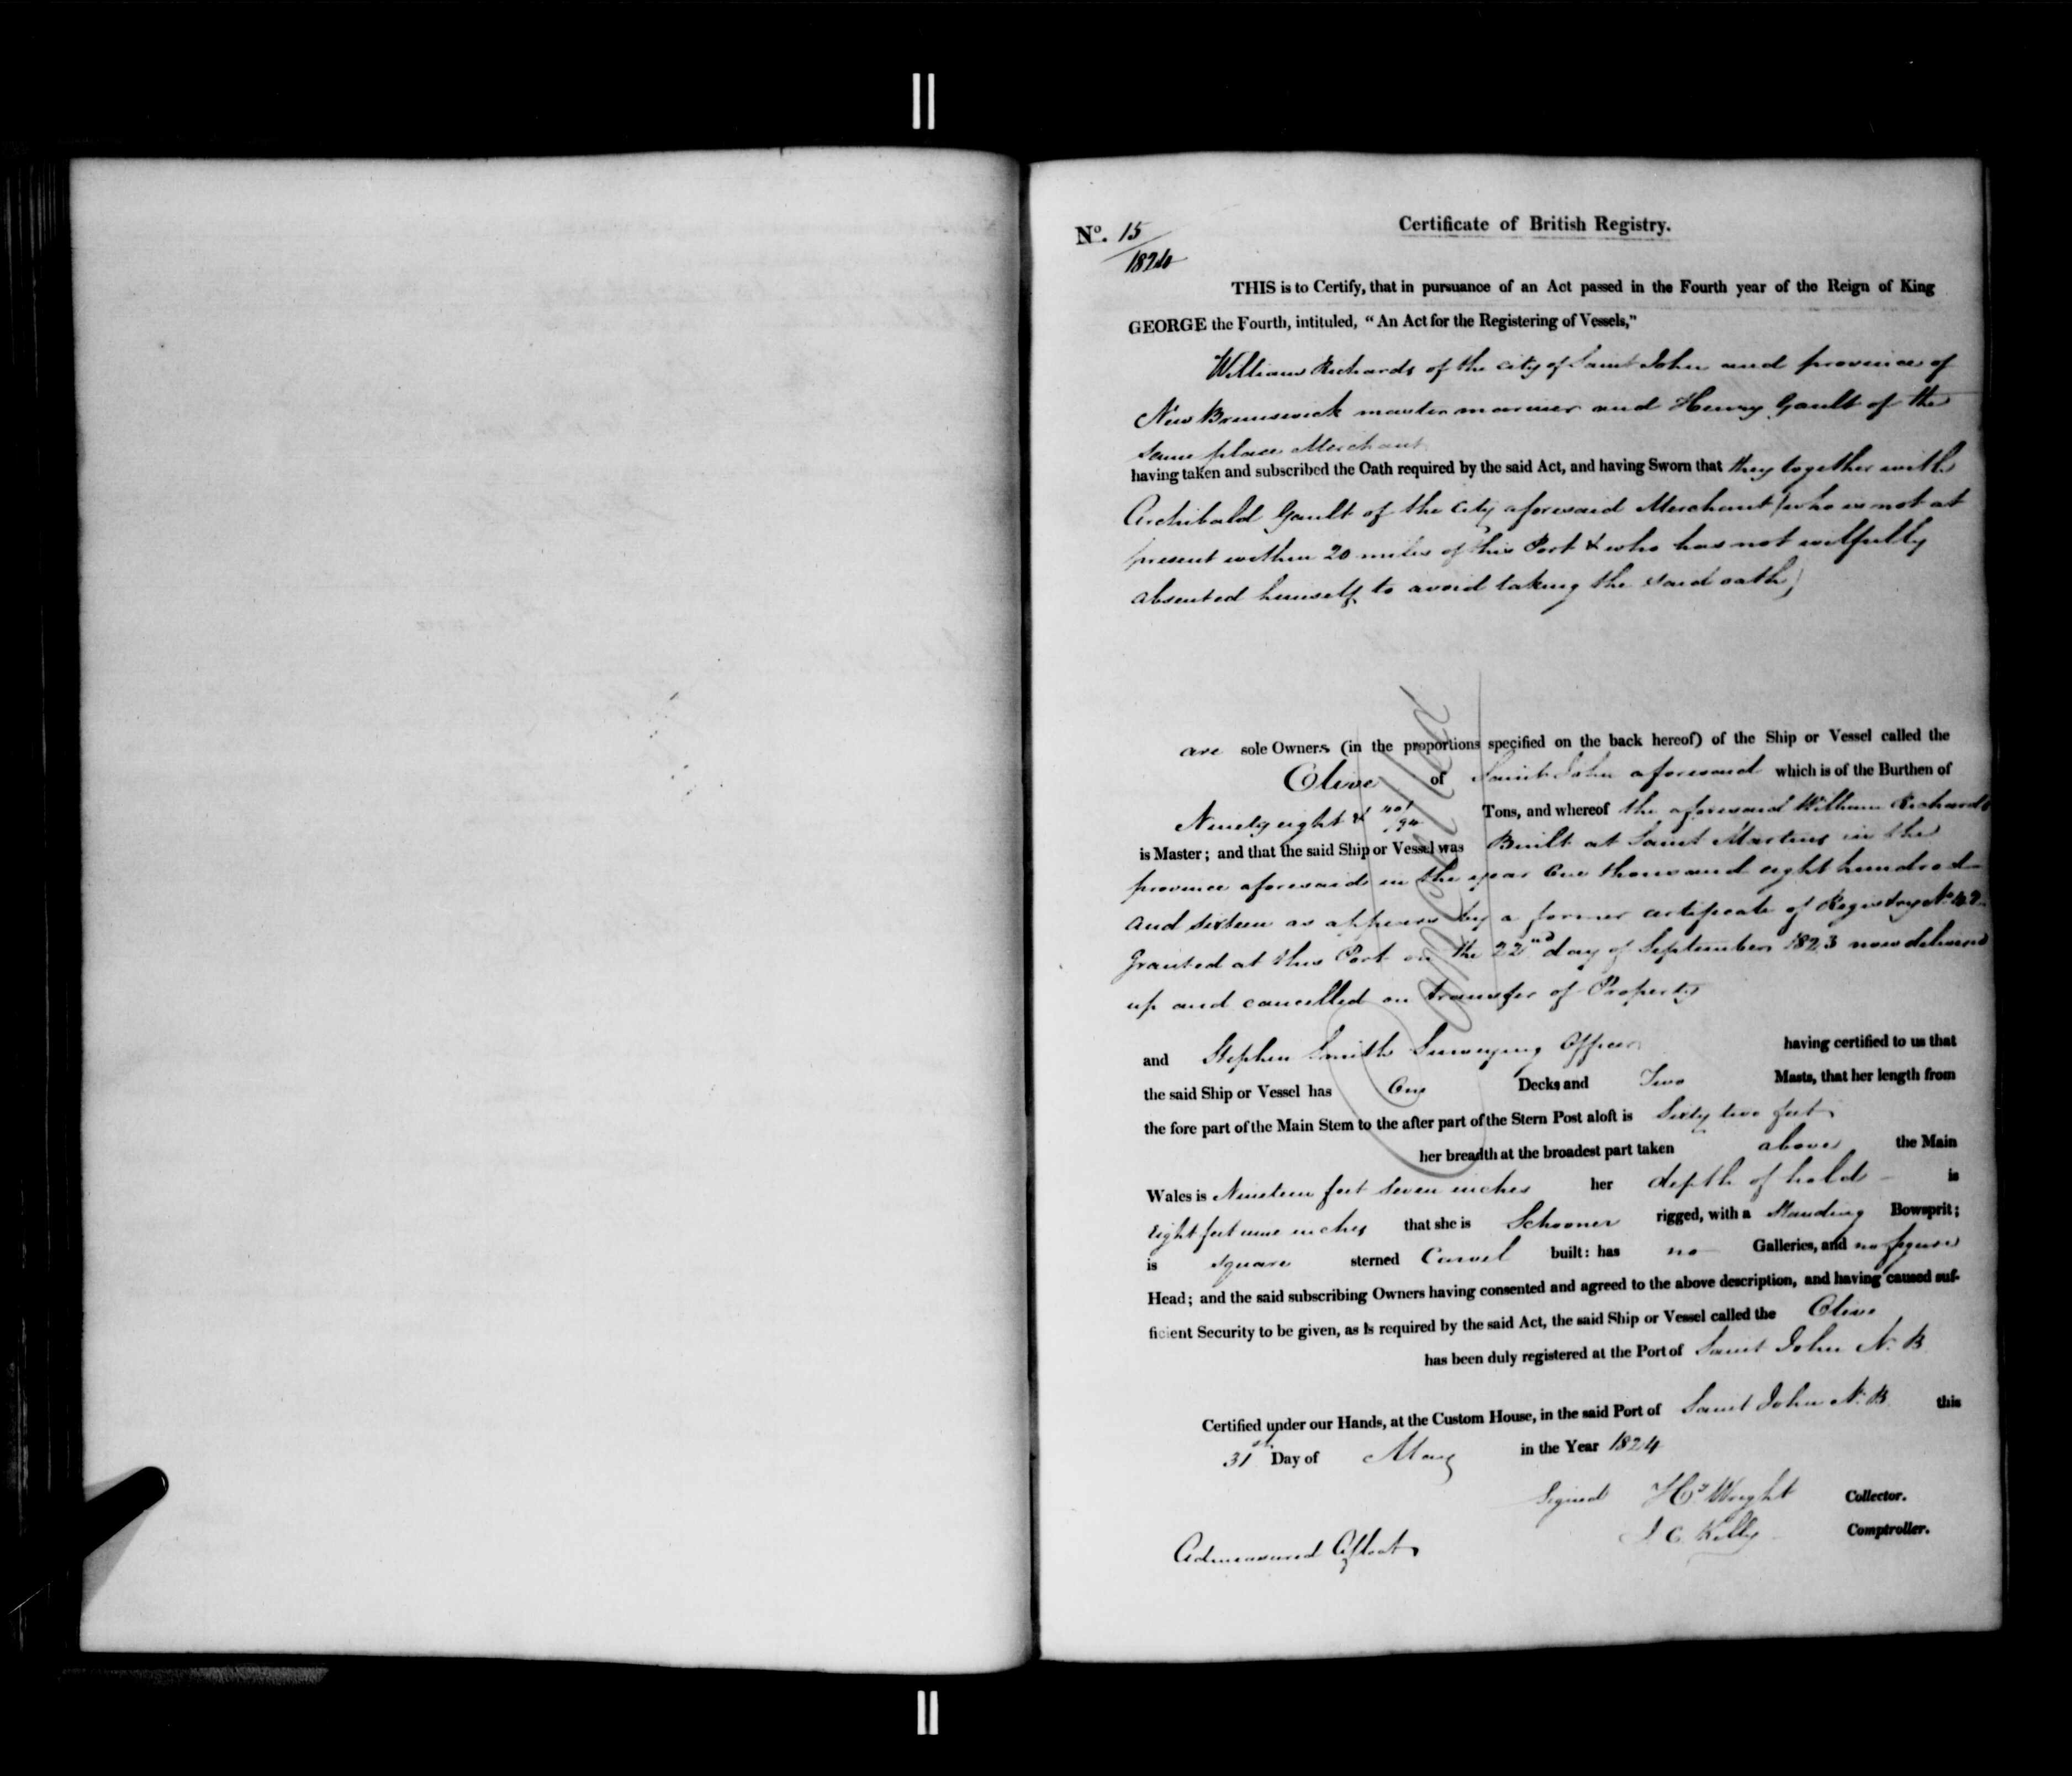 Certificate of British Registry.
No. 15/1824
THIS is to Certify, that in pursuance of an Act passed in the Fourth year of the Reign of King
GEORGE the Fourth, intituled, "An Act for the Registering of Vessels,"
William Richards of the city of Saint John and province of
New Brunswick master mariner and Henry Gault of the
same place Merchant
having taken and subscribed the Oath required by the said Act, and having Sworn that they together with
Archibald Gault of the city aforesaid Merchant (who is not at
present within 20 miles of this Port & who has not wilfully
absented himself to avoid taking the said oath)
are sole Owners (in the proportions specified on the back hereof) of the Ship or Vessel called the
Olive of Saint John aforesaid which is of the Burthen of
Ninety eight & /94 Tons, and whereof the aforesaid William Richards
is Master; and that the said Ship or Vessel was Built at Saint Martins in the
province aforesaid in the year One thousand eight hundred
and sixteen as appears by a former certificate of Registry No
Granted at this Port on the 22nd day of September 1823 now delivered
up and cancelled on transfer of Property
Cancelled
and Stephen Smith Surveying Officer having certified to us that
the said Ship or Vessel has One Decks and Two Masts, that her length from
the fore part of the Main Stem to the after part of the Stern Post aloft is Sixty two feet
her breadth at the broadest part taken above the Main
Wales is Nineteen feet seven inches her depth of hold is
Eight feet nine inches that she is Schooner rigged, with a Standing Bowsprit;
is square sterned Carvel built: has no Galleries, and no figure
Head; and the said subscribing Owners having consented and agreed to the above description, and having caused suf-
ficient Security to be given, as is required by the said Act, the said Ship or Vessel called the Olive
has been duly registered at the Port of Saint John N. B
Certified under our Hands, at the Custom House, in the said Port of Saint John N. B. this
31st Day of May in the Year 1824
Signed Hy Wright Collector.
J C Kelly Comptroller.
Admeasured Afloat